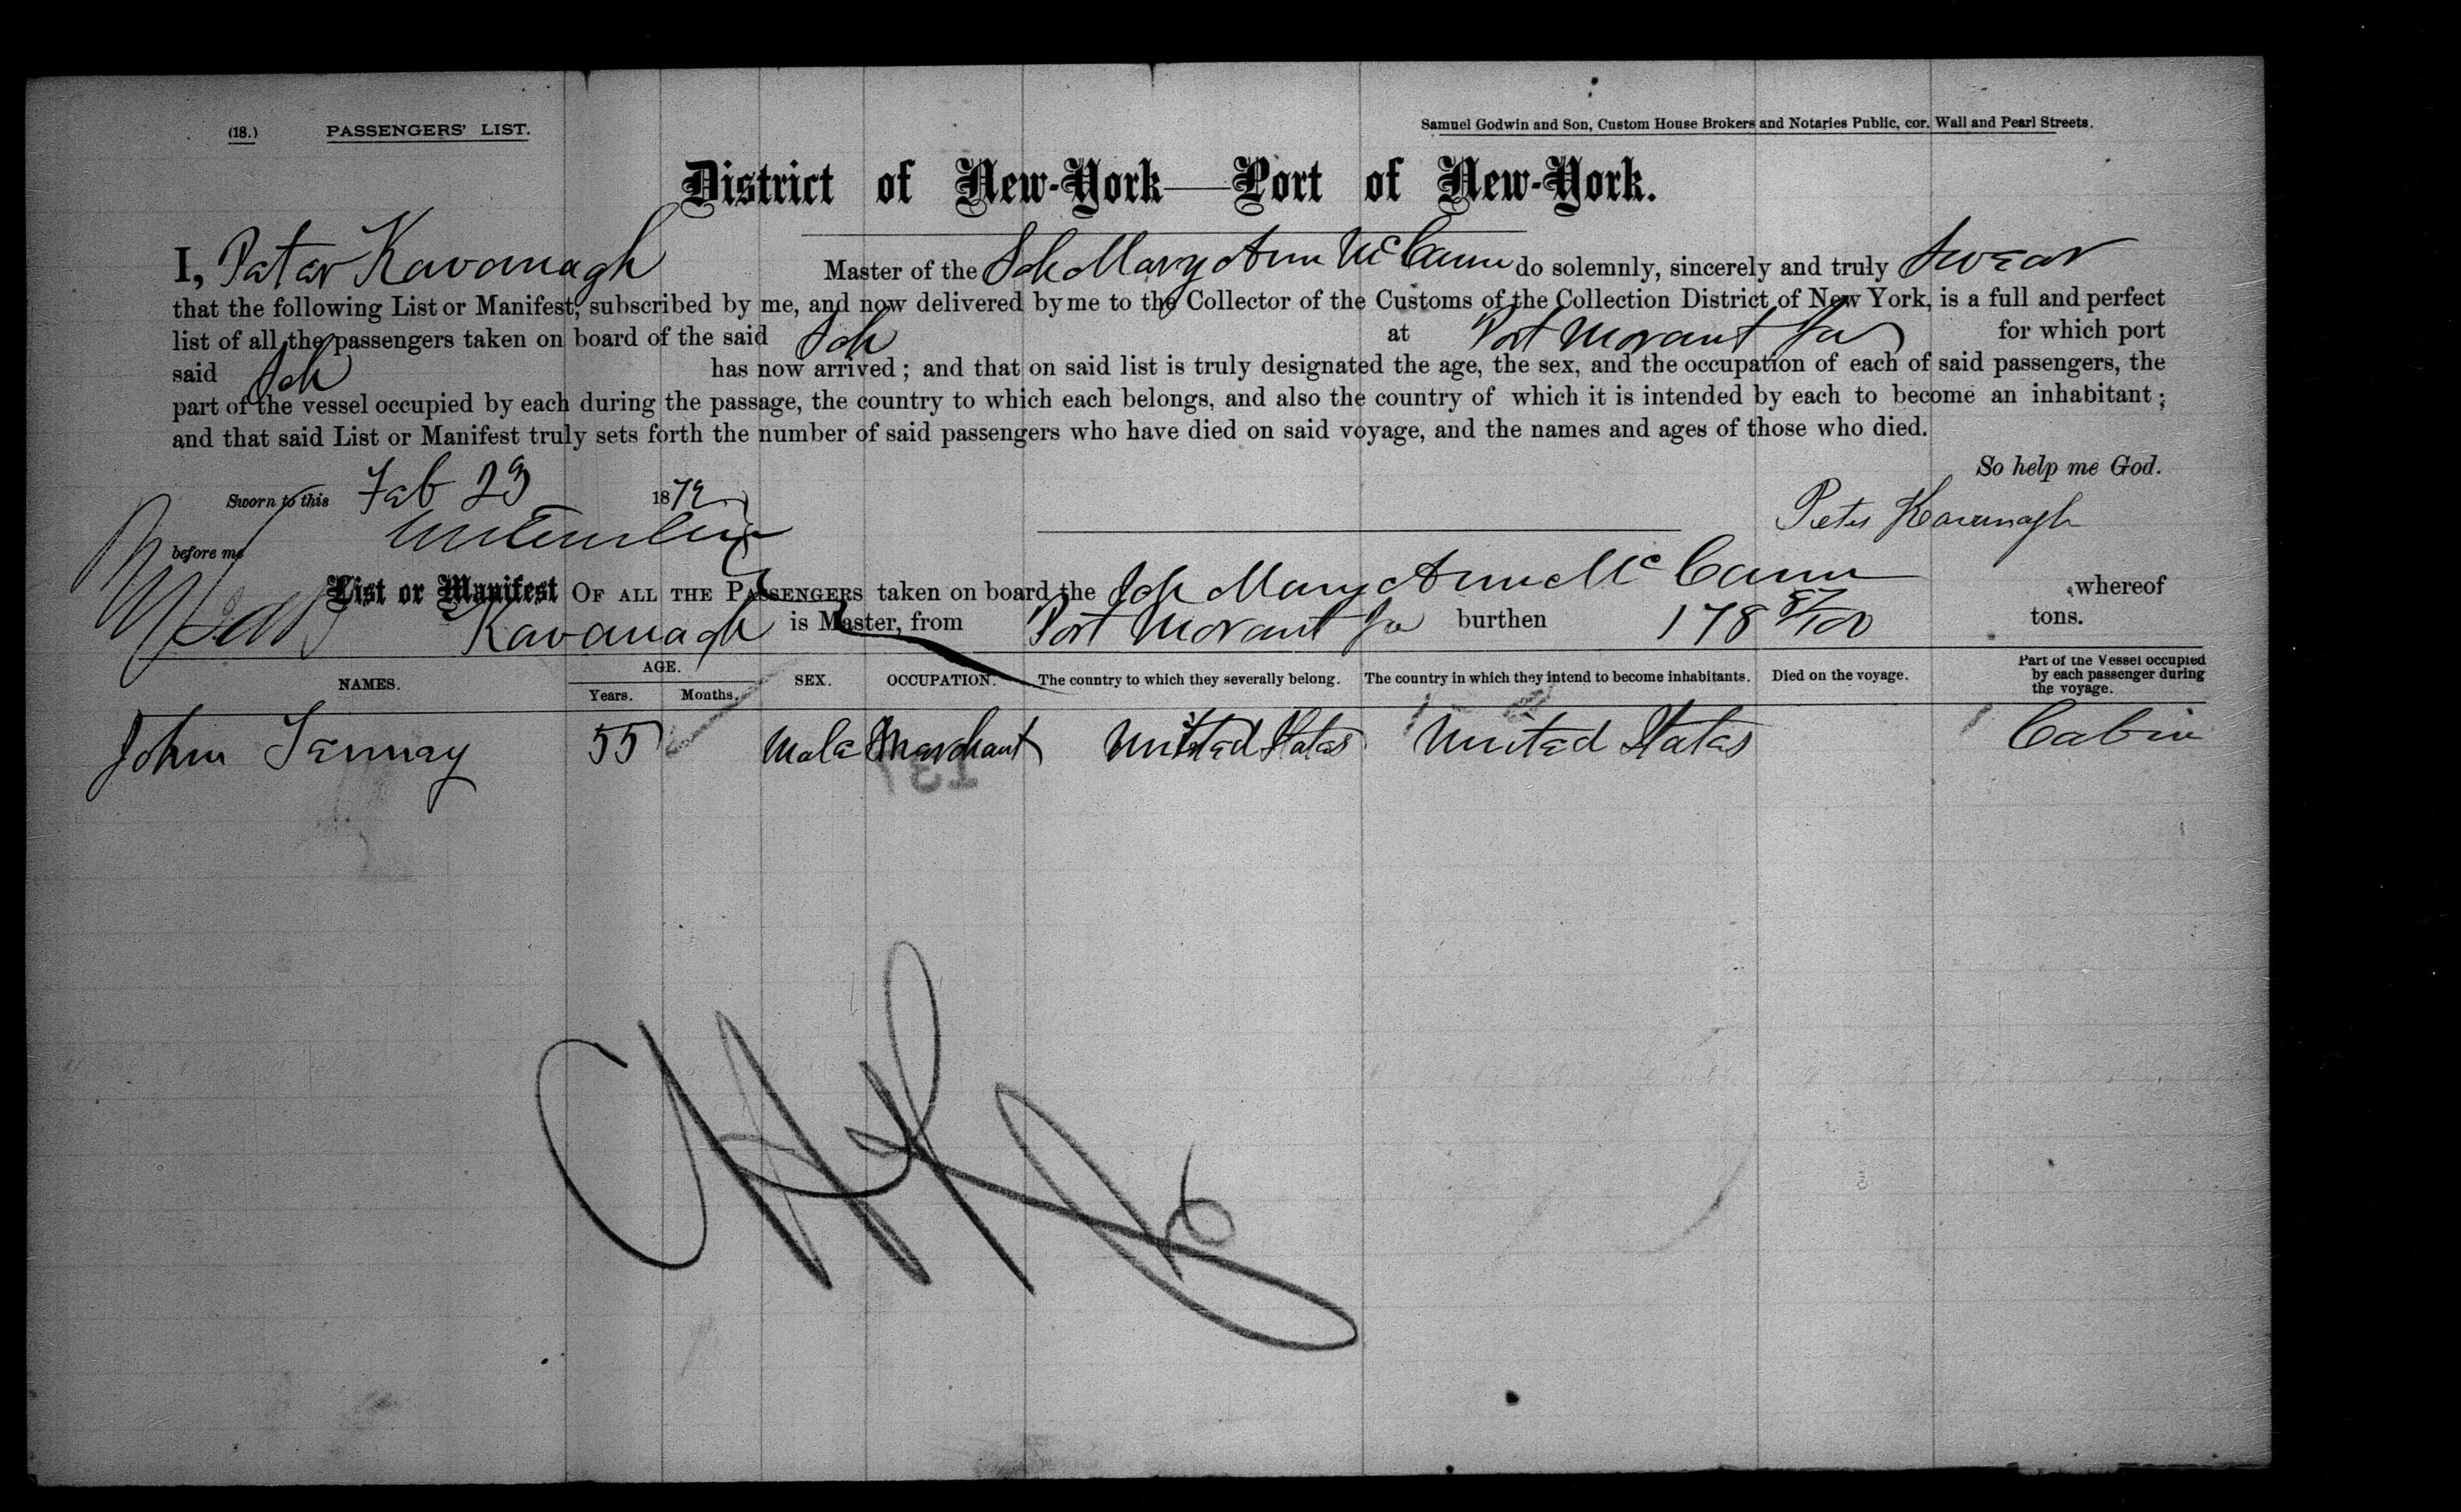 (18.) PASSENGERS' LIST. Samuel Godwin and Son, Custom House Brokers and Notaries Public, cor. Wall and Pearl Streets.
District of New-York—Port of New-York.
I, Peter Kavanagh Master of the Sch Mary Ann McCann do solemnly, sincerely and truly swear
that the following List or Manifest, subscribed by me, and now delivered by me to the Collector of the Customs of the Collection District of New York, is a full and perfect
list of all the passengers taken on board of the said Sch at Port Morant Ja for which port
said Sch has now arrived; and that on said list is truly designated the age, the sex, and the occupation of each of said passengers, the
part of the vessel occupied by each during the passage, the country to which each belongs, and also the country of which it is intended by each to become an inhabitant;
and that said List or Manifest truly sets forth the number of said passengers who have died on said voyage, and the names and ages of those who died.
So help me God.
Sworn to this Feb 23 1879
Peter Kavanagh
before me
List or Manifest OF ALL THE PASSENGERS taken on board the Sch Mary Ann McCann whereof
Kavanagh is Master, from Port Morant Ja burthen 178 87/100 tons.
NAMES. AGE. Years. Months. SEX. OCCUPATION. The country to which they severally belong. The country in which they intend to become inhabitants. Died on the voyage. Part of the Vessel occupied by each passenger during the voyage.
John 55 Male Merchant United States United States Cabin